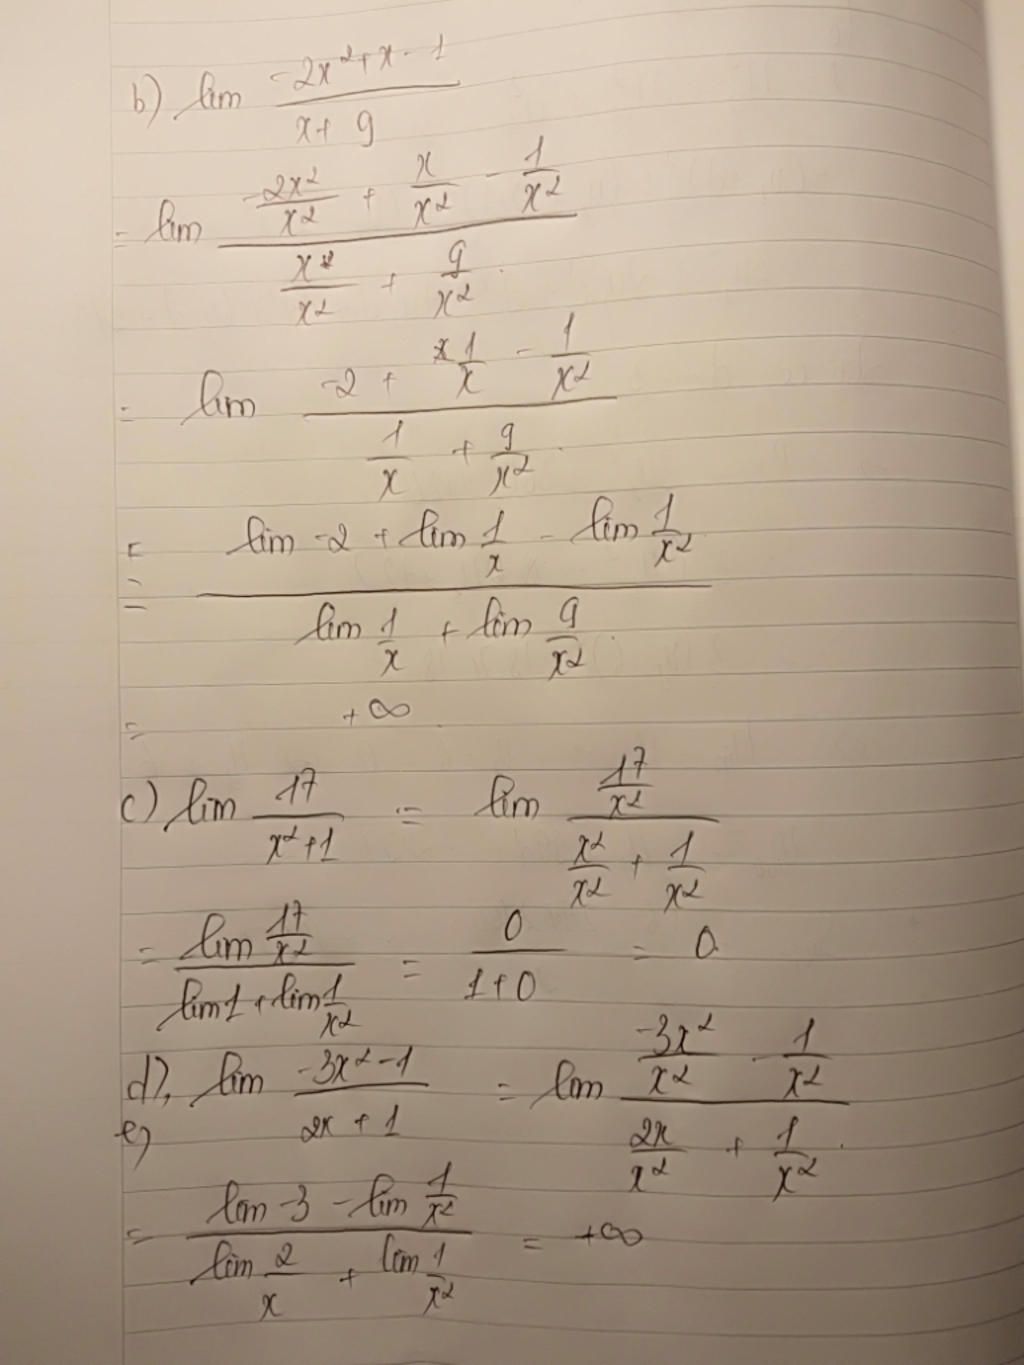 b) lim (-2x² + x - 1)/(x + 9)
= lim (-2x²/x² + x/x² - 1/x²)/(x/x² + 9/x²)
= lim (-2 + 1/x - 1/x²)/(1/x + 9/x²)
= (lim -2 + lim 1/x - lim 1/x²)/(lim 1/x + lim 9/x²)
= +∞
c) lim 17/(x² + 1) = lim (17/x²)/(x²/x² + 1/x²)
= (lim 17/x²)/(lim 1 + lim 1/x²) = 0/(1 + 0) = 0
d), lim (-3x² - 1)/(2x + 1) = lim (-3x²/x² - 1/x²)/(2x/x² + 1/x²)
e)
= (lim -3 - lim 1/x²)/(lim 2/x + lim 1/x²) = +∞